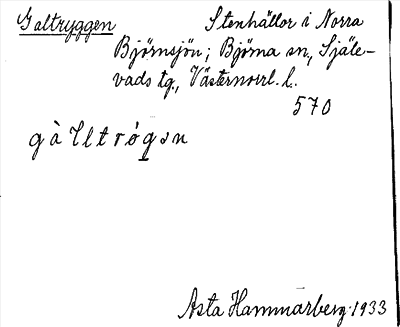 Galtryggen Stenhällor i Norra
Björnsjön; Björna sn., Själe-
vads tg., Västernorrl. l.
570
gàlltrógən
Asta Hammarberg 1933